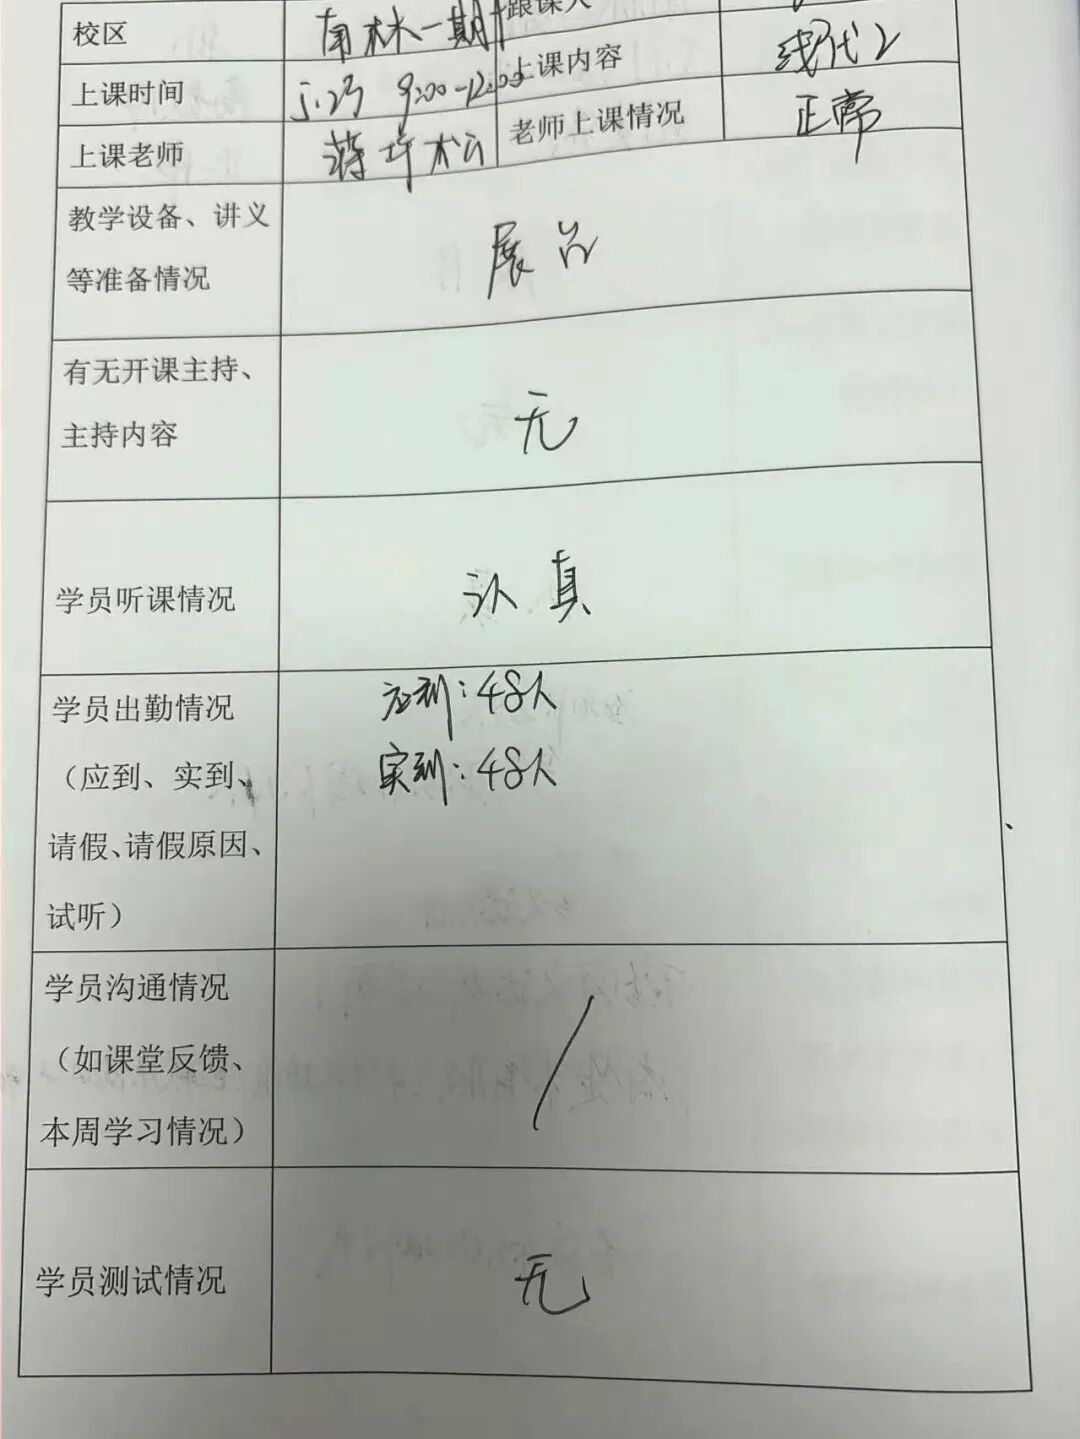 校区 南林一期 跟课人
上课时间 5.23 9:00-12:00 上课内容 线代2
上课老师 老师上课情况 正常
教学设备、讲义
等准备情况
展台
有无开课主持、
主持内容
无
学员听课情况 认真
学员出勤情况 应到：48人
（应到、实到、 实到：48人
请假、请假原因、
试听）
学员沟通情况
（如课堂反馈、
本周学习情况）
/
学员测试情况 无